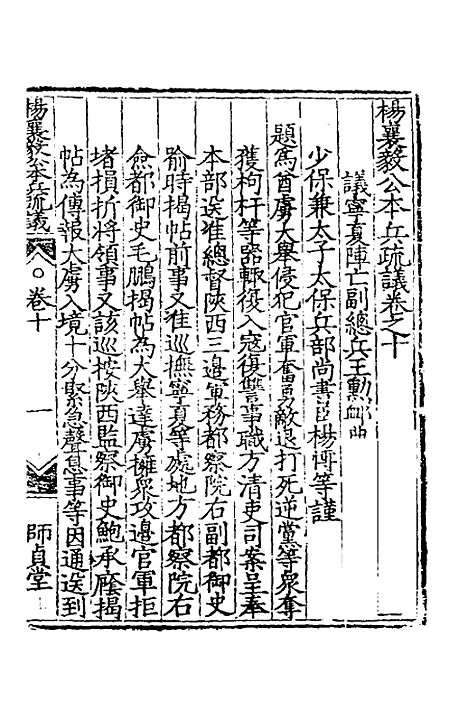 楊襄毅公本兵疏議卷之十
議寧夏陣亡副總兵王勳卹典
少保兼太子太保兵部尚書臣楊博等謹
題爲酋虜大舉侵犯官軍奮勇敵退打死逆黨等衆奪
獲枸杆等器輒復入寇復讐事職方清吏司案呈奉
本部送准總督陝西三邊軍務都察院右副都御史
喻時揭帖前事又准巡撫寧夏等處地方都察院右
僉都御史毛鵬揭帖為大舉達虜擁衆攻邊官軍拒
堵損折將領事又該巡按陝西監察御史鮑承廕揭
帖為傳報大虜入境十分緊急聲息事等因通送到
楊襄毅公本兵疏議
卷十
一
師貞堂